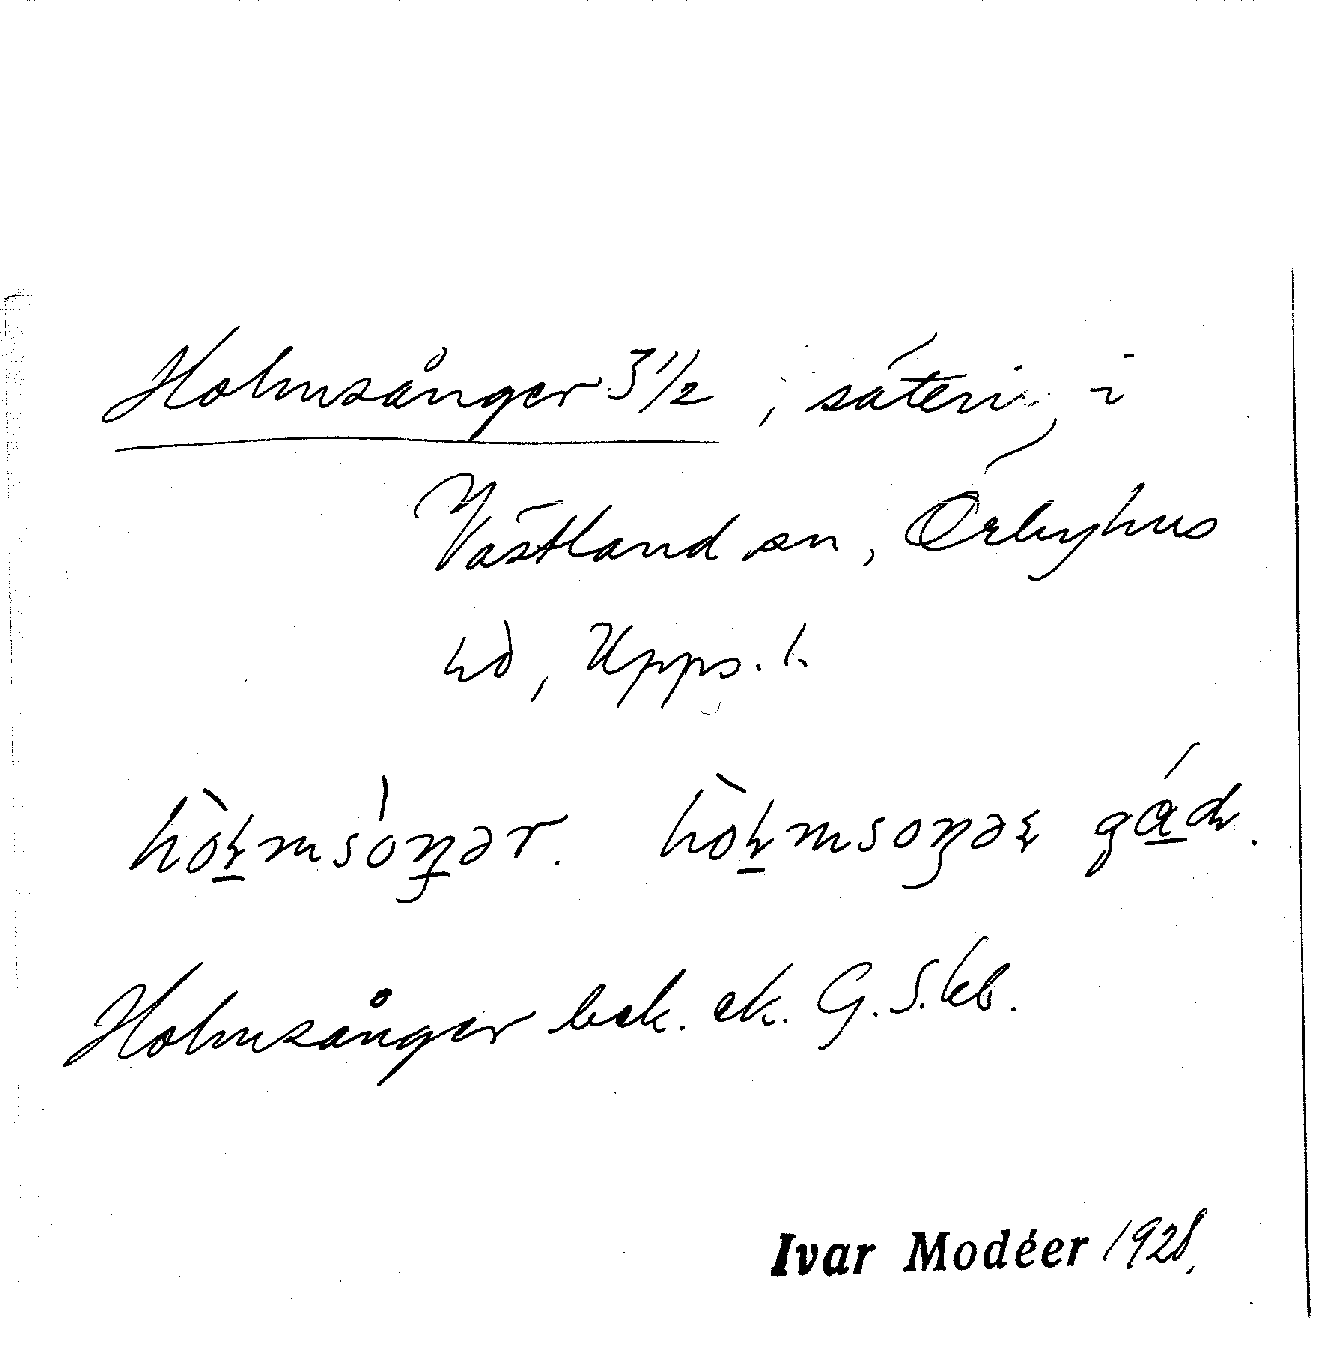 Holmsånger 3 1/2, säteri, i
Västland sn, Örbyhus
hd, Upps. l.
hòꞎms'oŋər. hòꞎmsoŋəꞎ gáɖ.
Holmsånger bek. ek. G.S.kb.
Ivar Modéer 1928.